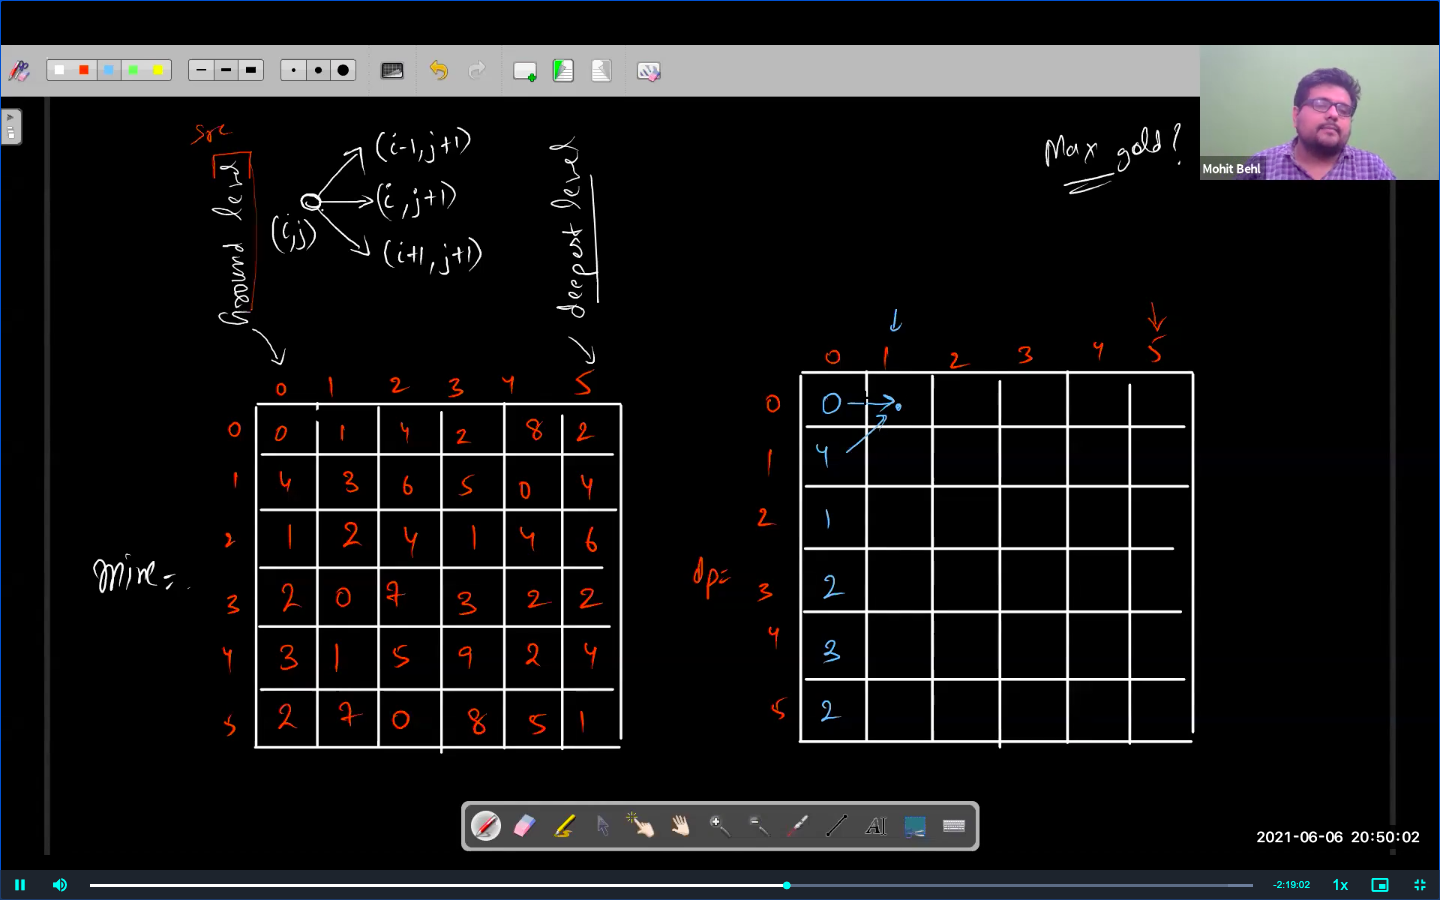 Max gold?
Mohit Behl
src
Ground level
(i-1, j+1)
(i, j+1)
(i,j)
(i+1, j+1)
deepest level
0 1 2 3 4 5
0 0 1 4 2 8 2
1 4 3 6 5 0 4
2 1 2 4 1 4 6
3 2 0 7 3 2 2
4 3 1 5 9 2 4
5 2 7 0 8 5 1
mine=
0 1 2 3 4 5
0 0
1 4
2 1
dp=
3 2
4 3
5 2
AI
2021-06-06 20:50:02
-2:19:02
1x